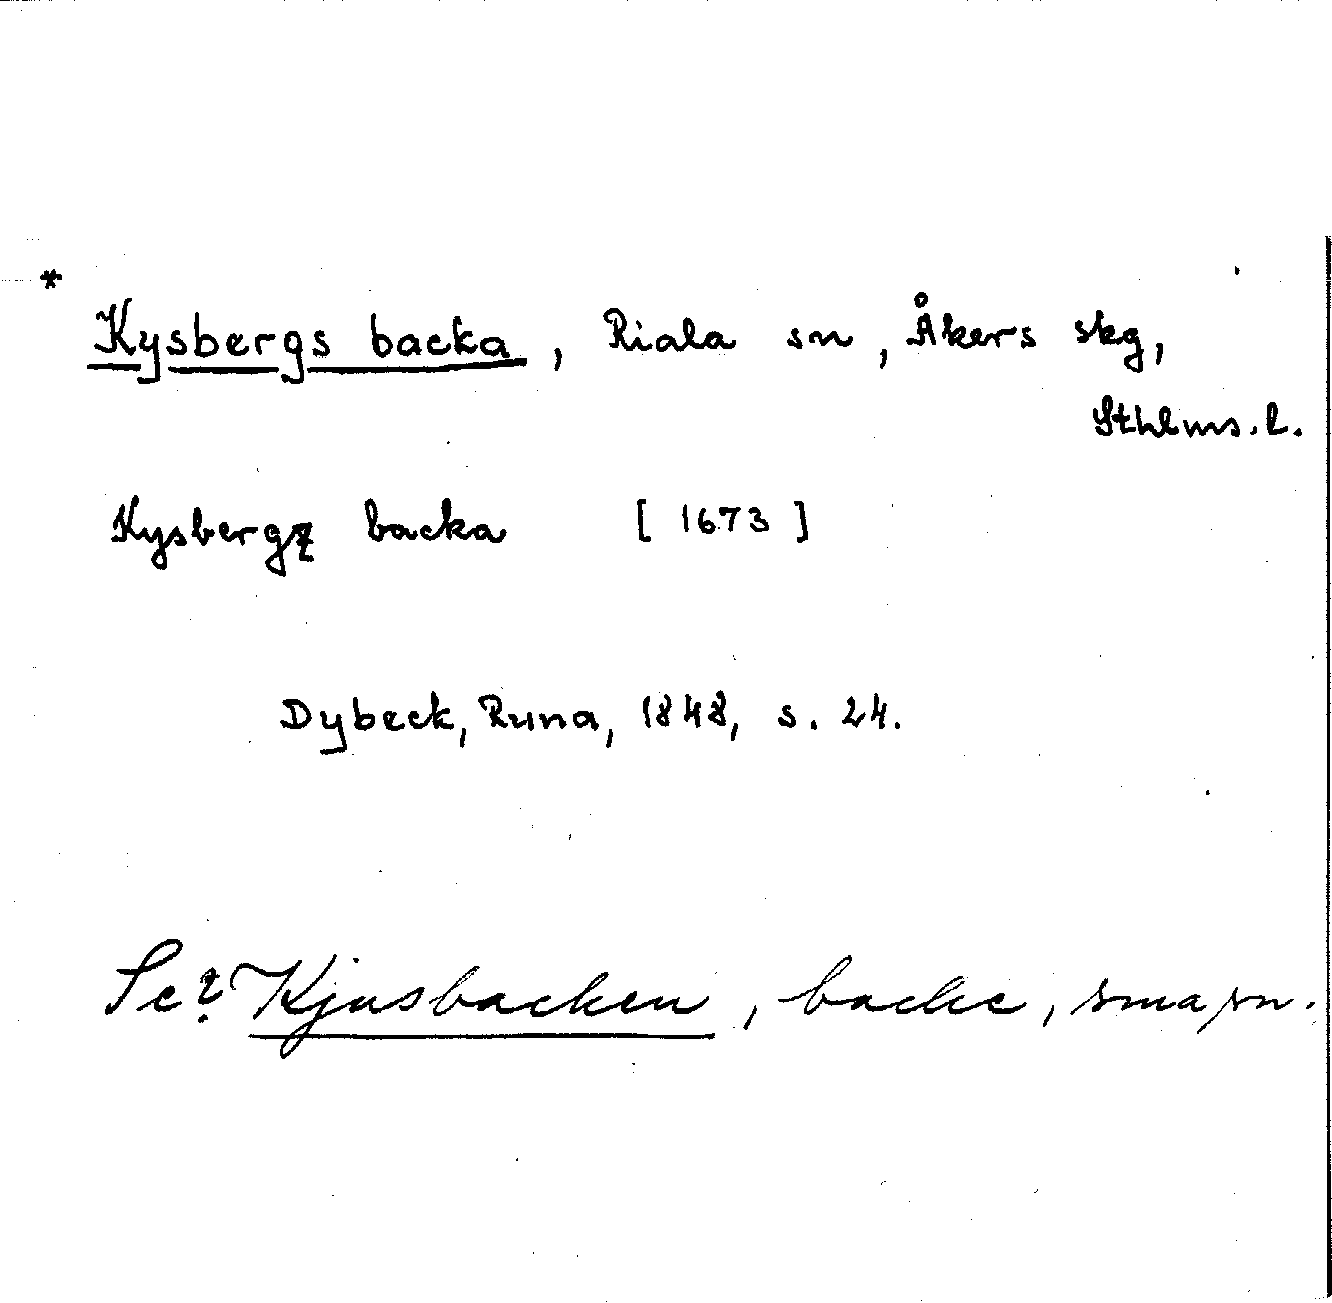 * Kysbergs backa, Riala sn, Åkers skg,
Sthlms. l.
Kysbergz backa [1673]
Dybeck, Runa, 1848, s. 24.
Se? Kjusbacken, backe, sma sn.